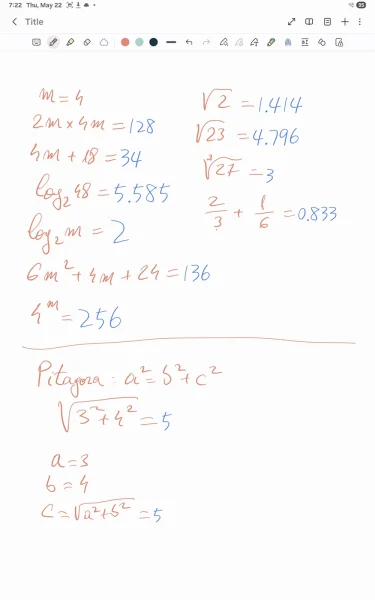 7:22 Thu, May 22
95
Title
m = 4
2m × 4m = 128
4m + 18 = 34
log₂48 = 5.585
log₂m = 2
6m² + 4m + 24 = 136
4ᵐ = 256
√2 = 1.414
√23 = 4.796
∛27 = 3
2/3 + 1/6 = 0.833
Pitagora: a² = b² + c²
√3² + 4² = 5
a = 3
b = 4
c = √a² + b² = 5